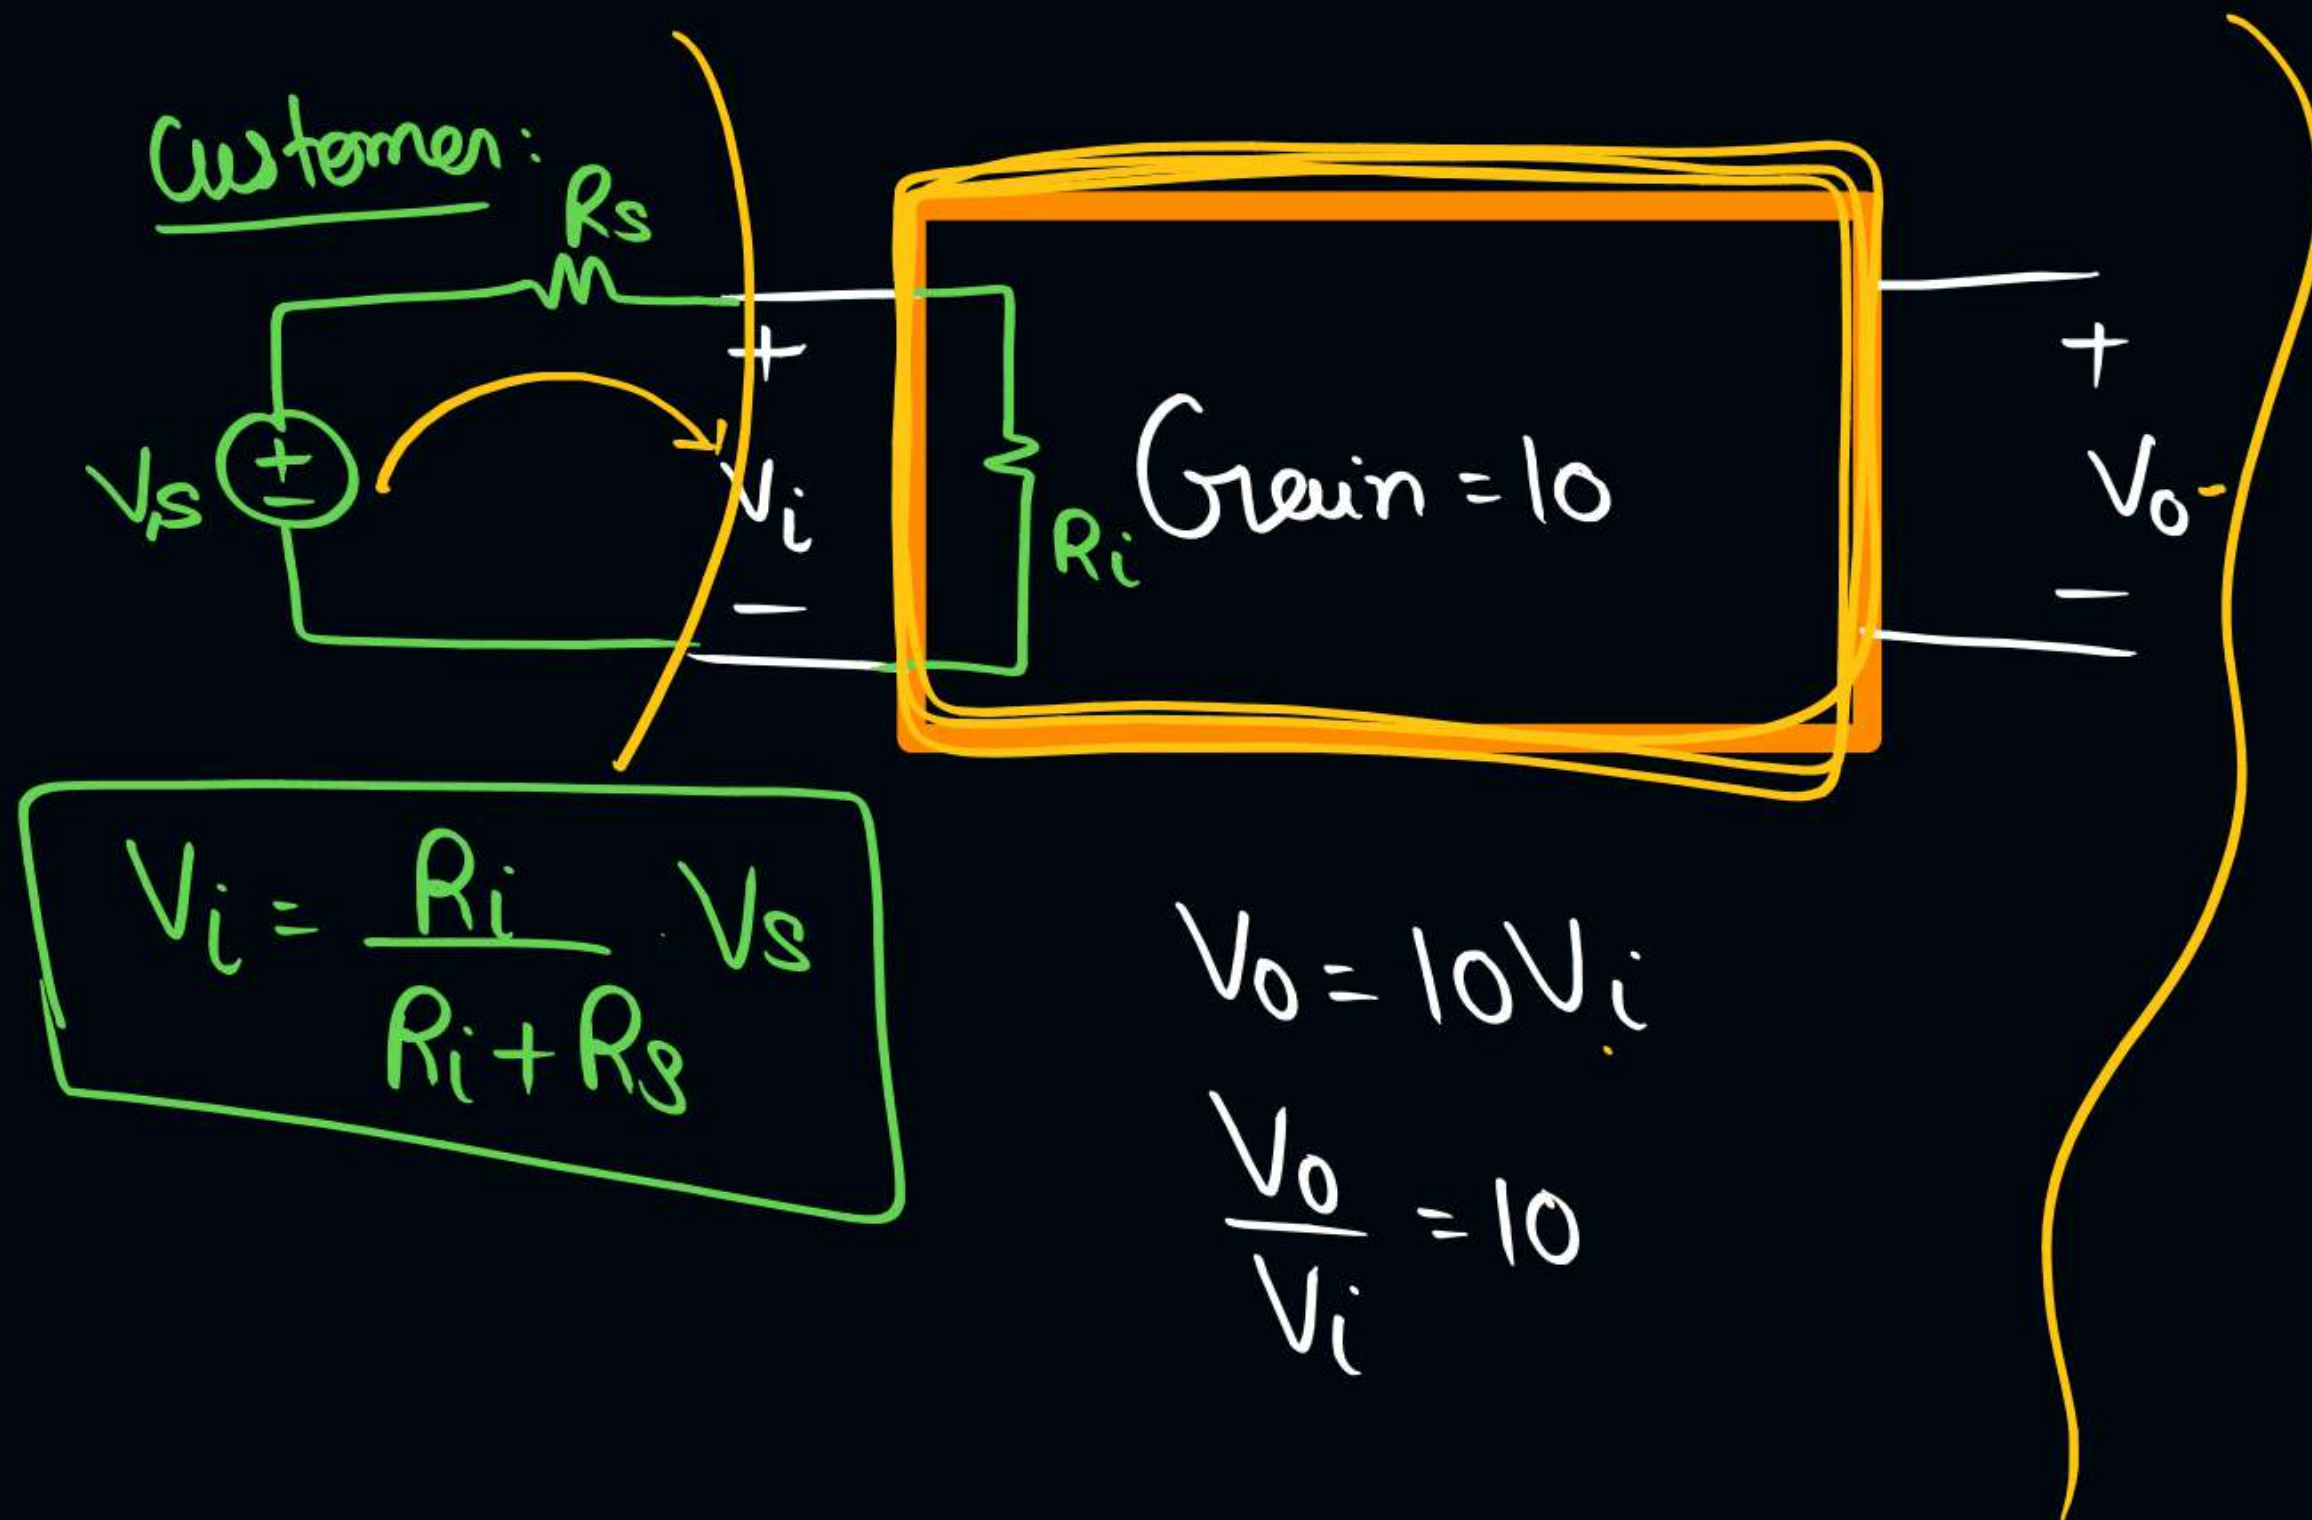 Customer:
Rs
+
Vs
+
-
Vi
-
Ri
Gain = 10
+
Vo -
-
Vi = Ri / (Ri + Rs) . Vs
Vo = 10Vi
Vo / Vi = 10